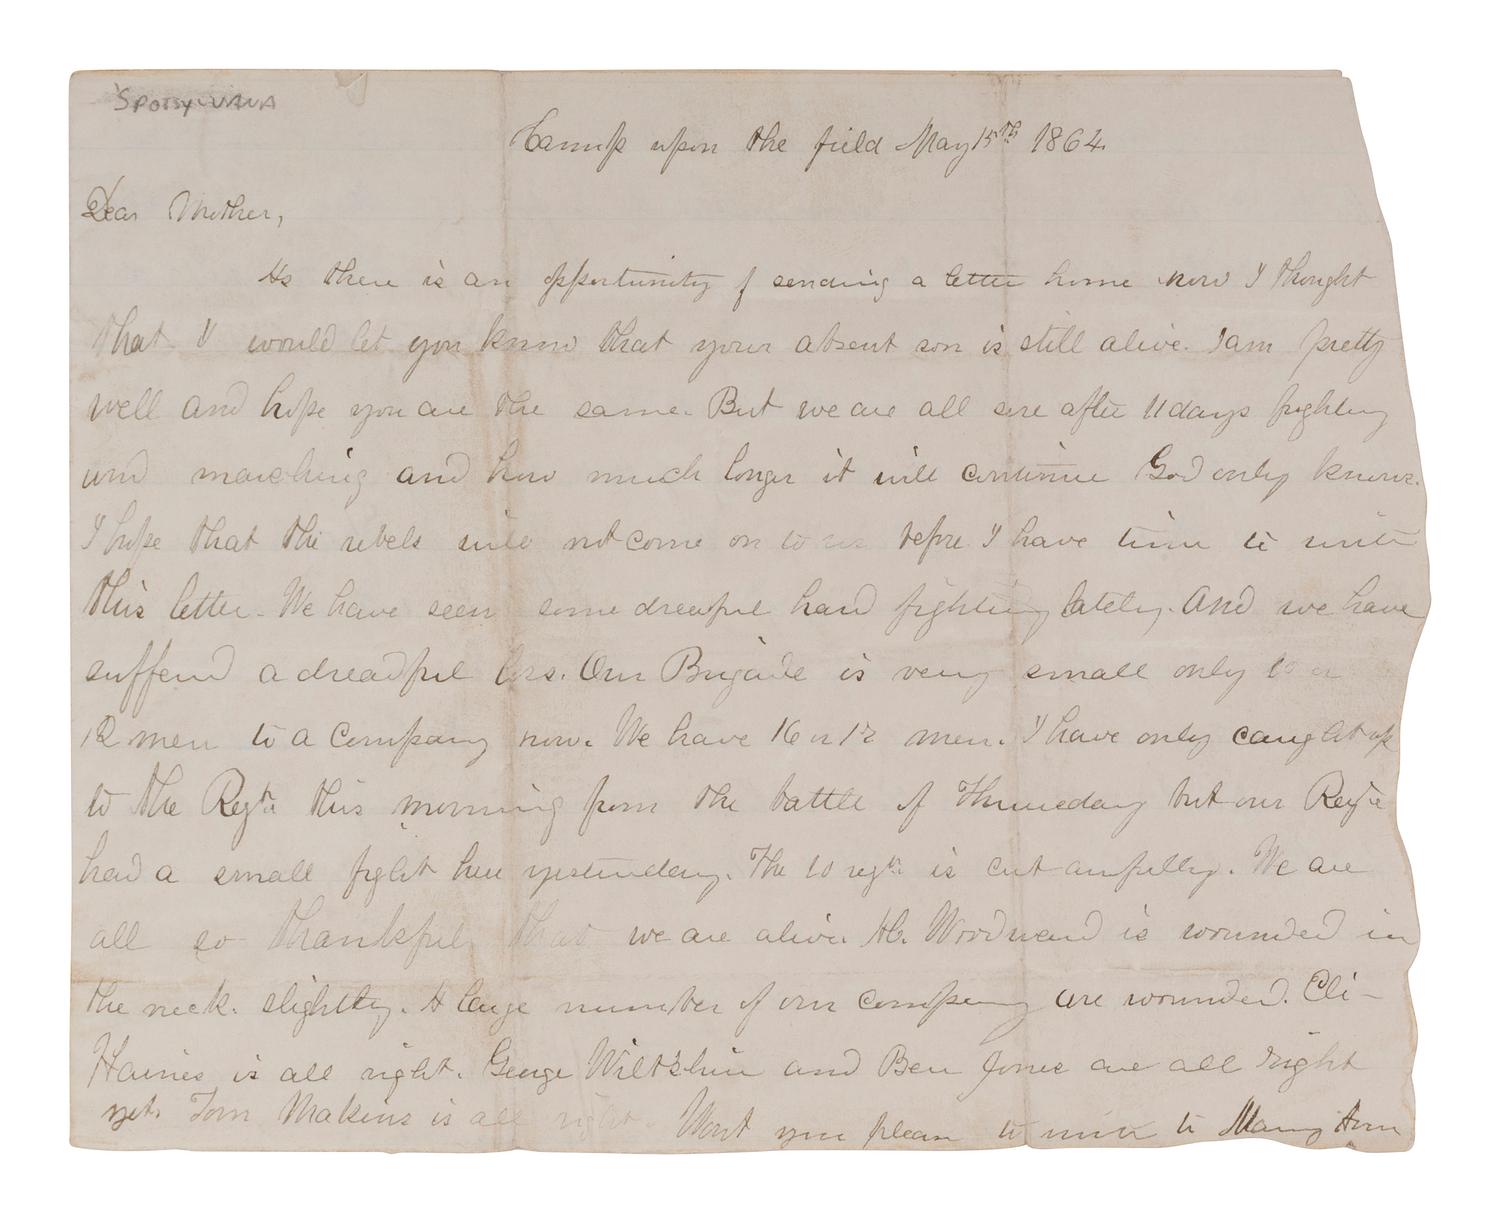 SPOTSYLVANIA
Camp upon the field May 15th 1864.
Dear Mother,
As there is an opportunity of sending a letter home now I thought
that I would let you know that your absent son is still alive. I am pretty
well and hope you are the same. But we are all sore after 11 days fighting
and marching and how much longer it will continue God only knows.
I hope that the rebels will not come on to us before I have time to write
this letter. We have seen some dreadful hard fighting lately. And we have
suffered a dreadful loss. Our Brigade is very small only 10 or
12 men to a Company now. We have 16 or men. I have only caught up
to the Regt. this morning from the battle of Thursday but our Regt
had a small fight here yesterday. The 10 regt. is cut awfully. We are
all so thankful that we are alive. Woodward is wounded in
the neck. slightly. A large number of our company are wounded. Eli
Haines is all right. George Wiltshire and Ben Jones are all right
yet. Tom Makins is all right. Wont you please to write to Mary Ann